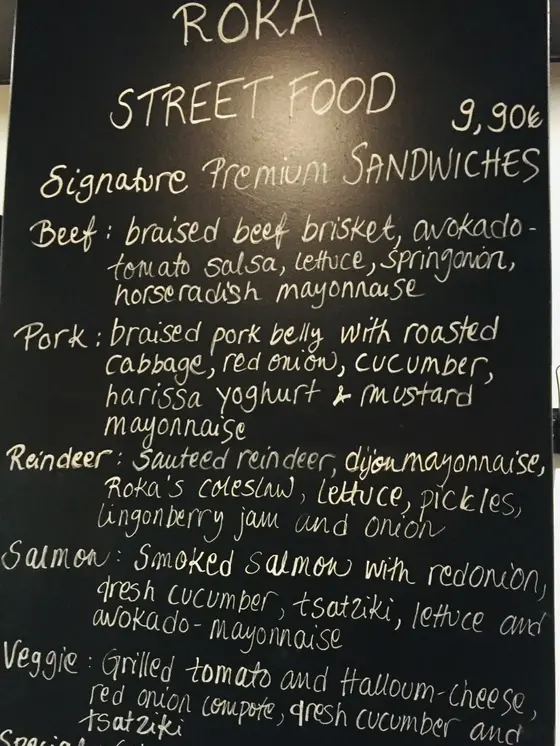 ROKA
STREET FOOD
9,90€
Signature Premium SANDWICHES
Beef: braised beef brisket, avokado-
tomato salsa, lettuce, springonion,
horseradish mayonnaise
Pork: braised pork belly with roasted
cabbage, red onion, cucumber,
harissa yoghurt & mustard
mayonnaise
Reindeer: Sauteed reindeer, dijonmayonnaise,
Roka's coleslaw, lettuce, pickles,
lingonberry jam and onion
Salmon: Smoked salmon with redonion,
fresh cucumber, tsatziki, lettuce and
avokado-mayonnaise
Veggie: Grilled tomato and Halloum-cheese,
red onion compote, fresh cucumber and
tsatziki